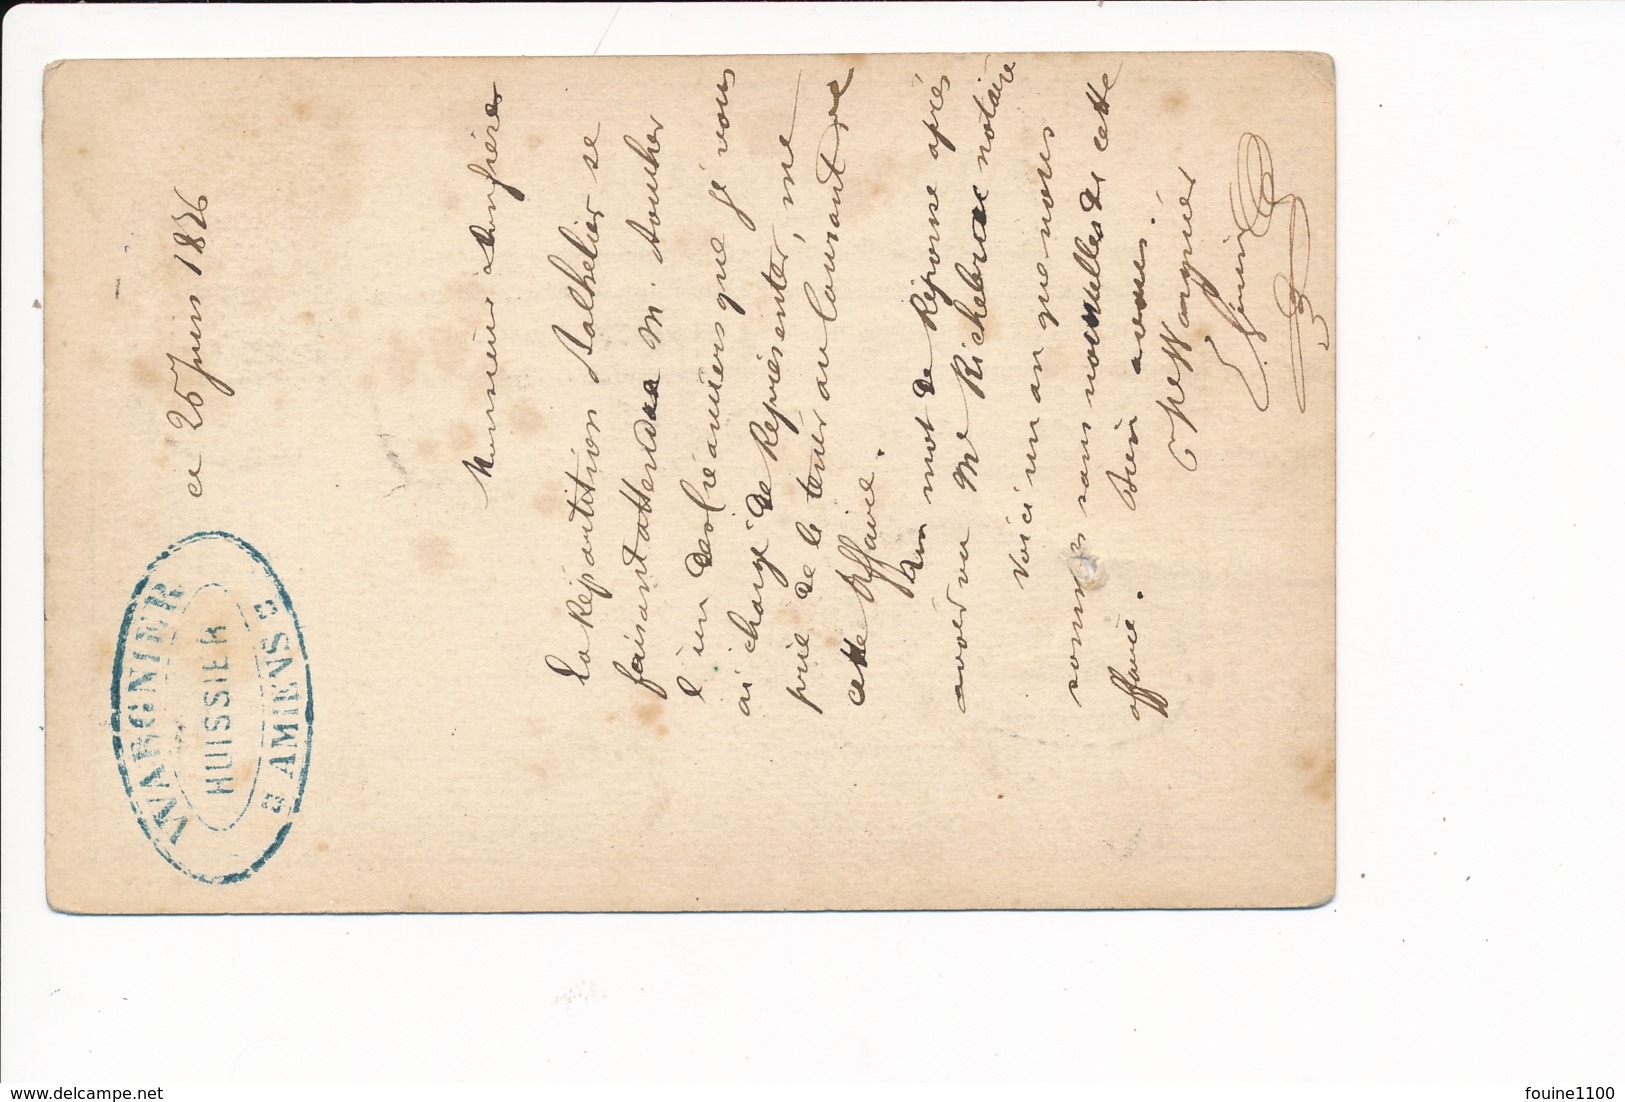 WARGNIER
HUISSIER
AMIENS
ce 25 Juin 1876
Monsieur & Confrère
La Répartition Balhelier se
faisant attendre M. Boucher
l'un des créanciers que je vous
ai chargé de Représenter, me
prie de le tenir au Courant de
cette affaire.
Un mot de Réponse après
avoir vu Me Richebrac notaire
Voici un an que nous
sommes sans nouvelles de cette
affaire. Bien à vous.
Wargnier
delcampe.net
fouine1100